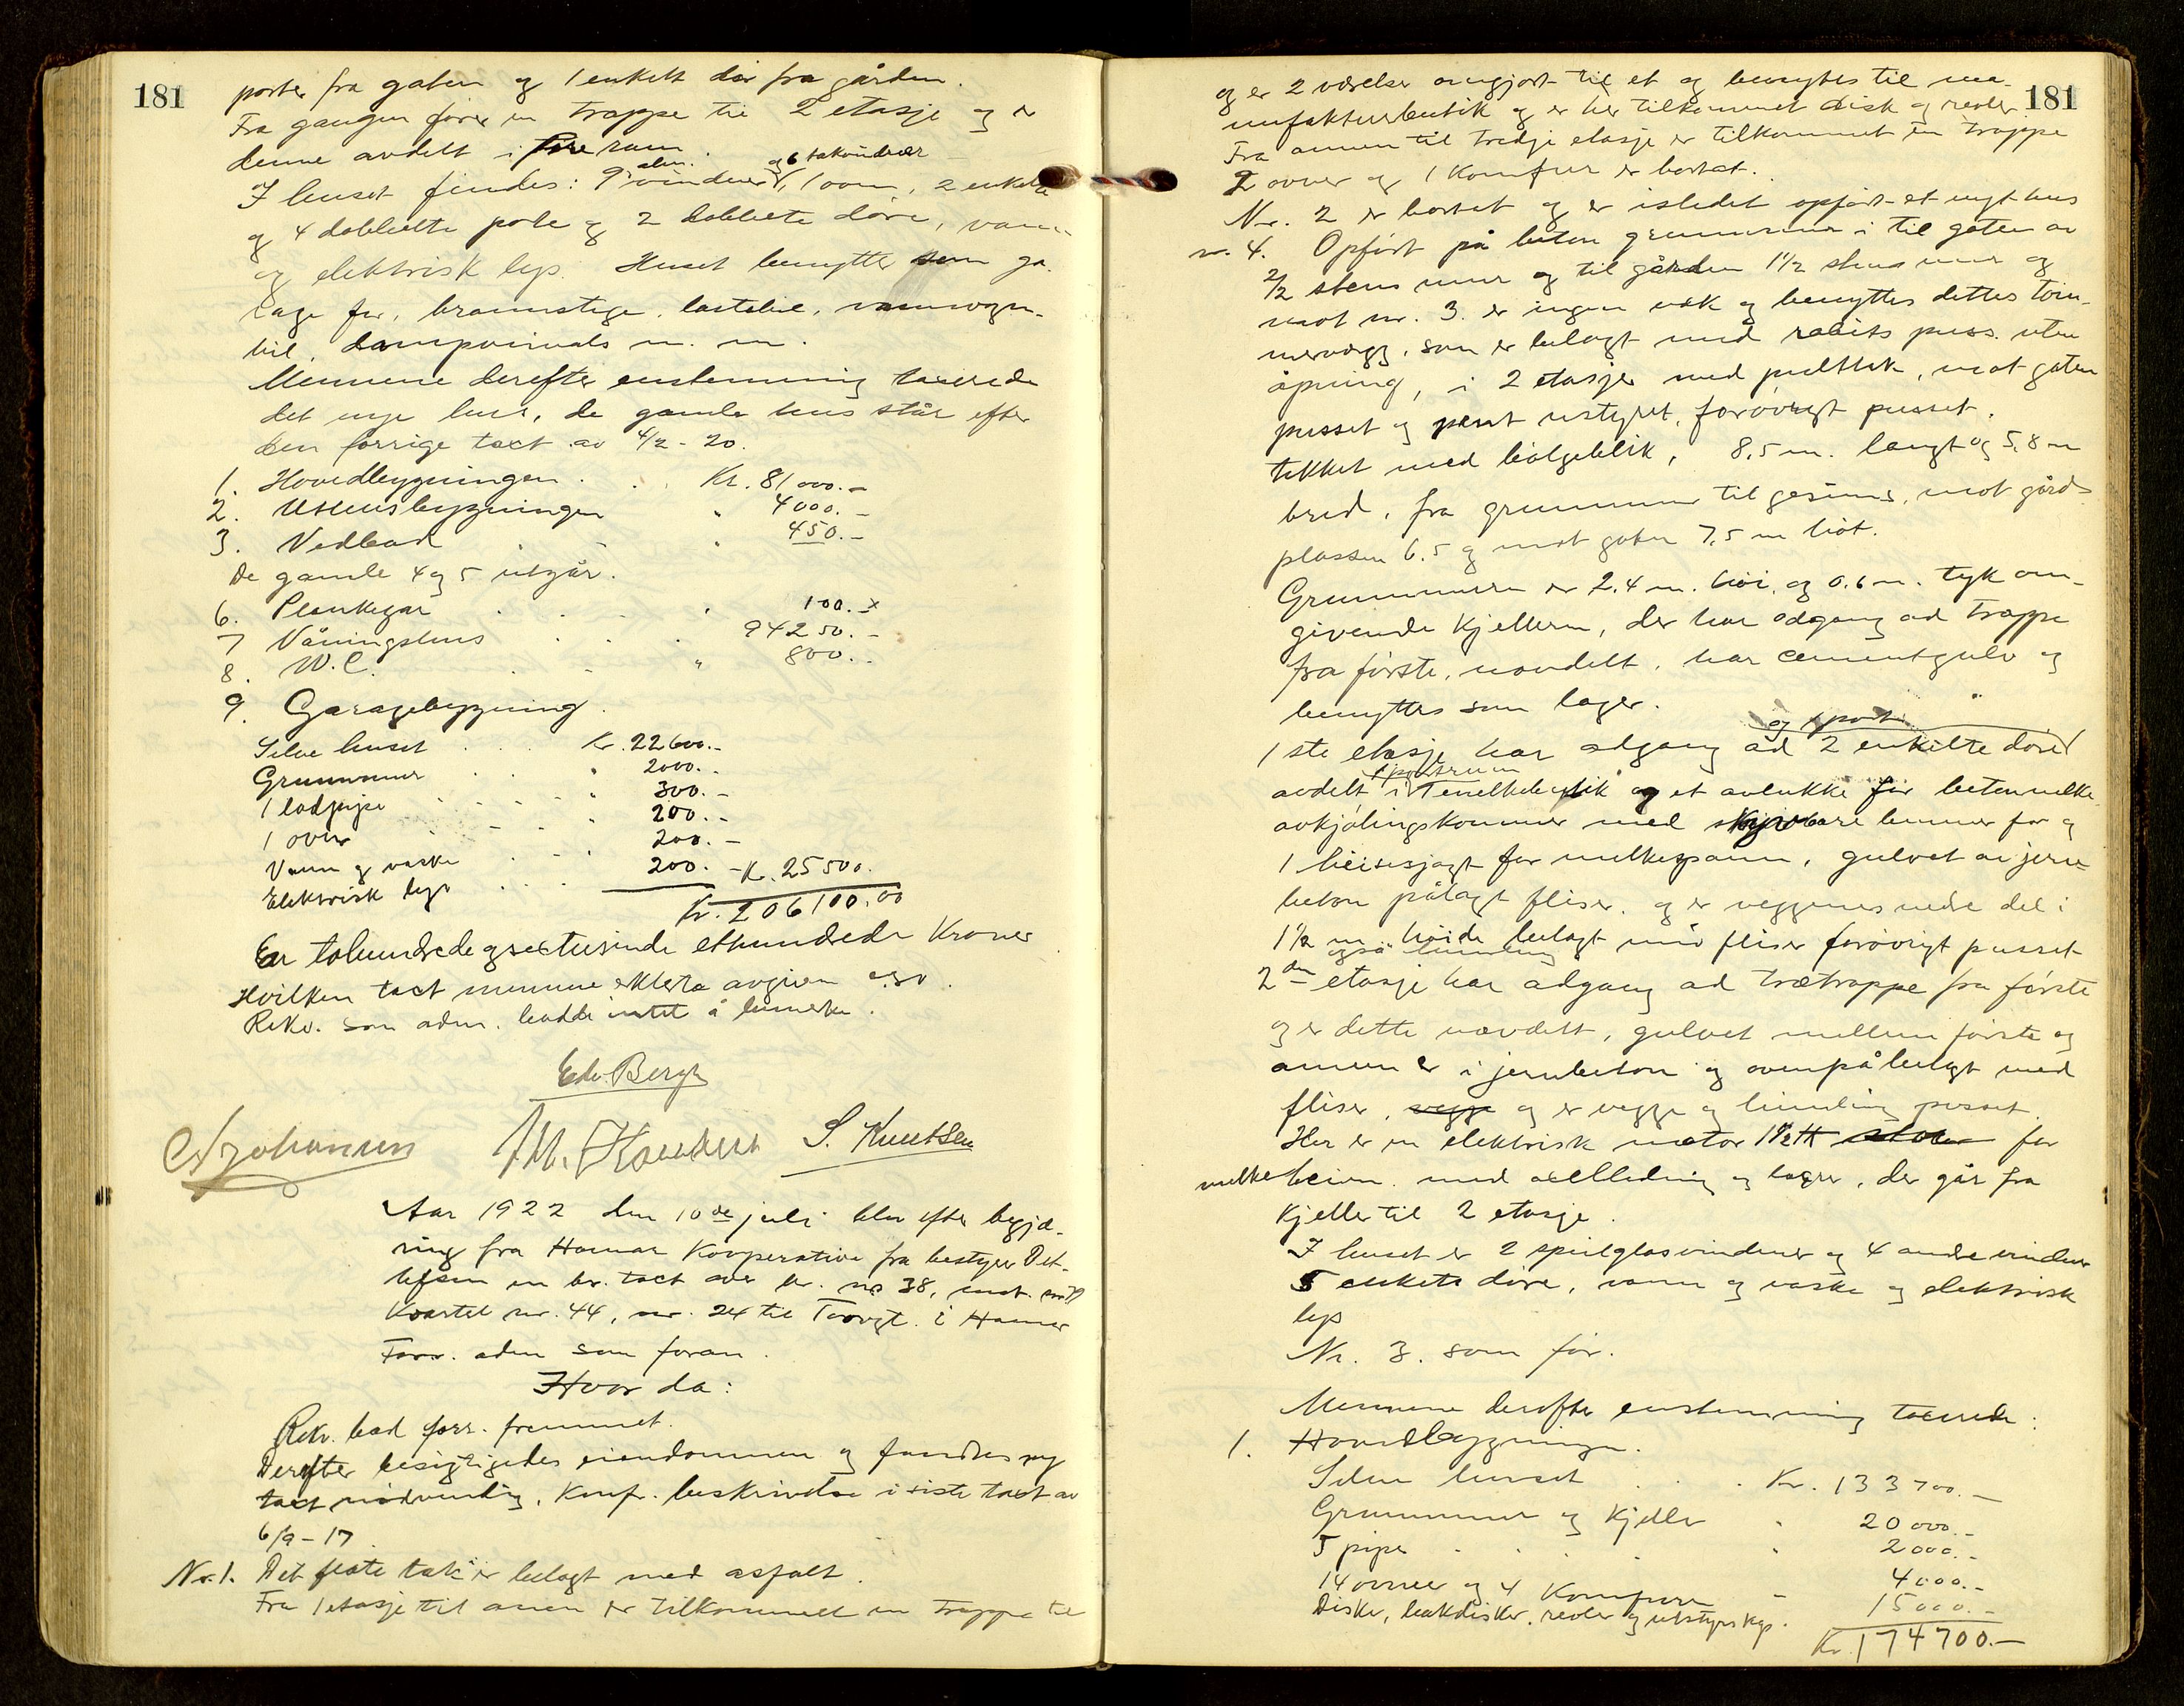 181
porter fra gaten og 1 enkelt dør fra gården.
Fra gangen fører en trappe til 2 etasje og er
denne avdelt i fire rom.
alm. og 6 takvinduer
I huset findes: 9 vinduer, 1 ovn, 2 enkelte
og 4 dobbelte porte og 2 dobbelte døre, vann
og elektrisk lys. Huset benyttes som ga-
rage for, brannstige, lastebil, vannvogn-
bil, m. m.
Mennene derefter enstemmig taxerede
det nye hus, de gamle hus står efter
den forrige taxt av 4/2 - 20.
1. Hovedbygningen . . Kr. 81000.-
2. Uthusbygningen " 4000.-
3. Vedbod " 450.-
De gamle 4 og 5 utgår.
6. Plankegar . . . " 100.-
7 Våningshus . . . 94250.-
8. W.C. . . " 800.-
9. Garagebygning.
Selve huset . . . Kr. 22600.-
Grunnmur . . " 2000.-
1 lodpipe . . . . " 300.-
1 ovn . . . . " 200.-
Vann og vaske . . . " 200.-
Elektrisk lys . . . . 200.- Kr. 25500.
Kr. 206100.00
Er tohundredeogsextusinde ethundrede Kroner
Hvilken taxt mennene erklerte avgiven o.s.v.
Rekv. som adm. hadde intet å bemerke.
Edv. Bergh
Johansen
S. Knutsen
Aar 1922 den 10de juli blev efter begjæ-
ring fra Hamar Kooperative fra bestyrer Det-
lefsen en br. taxt over br. no 38,
Kvartel nr. 44, nr. 24 til Torvgt. i Hamar
Forr. adm som foran.
Hvor da:
Rekv. bad forr. fremmet.
Derefter besigtigedes eiendommen og fandtes ny
taxt nødvendig. Konf. beskrivelse i siste taxt av
6/9 - 17.
Nr. 1. Det flate tak er belagt med asfalt.
Fra 1 etasje til anen er tilkommet en trappe til
181
og er 2 værelser omgjort til et og benyttes til ma-
nufakturbutik og er her tilkommet disk og reoler
Fra annen til tredje etasje er tilkommet en trappe
2 ovner og 1 Komfur er bortat.
Nr. 2 er bortat og er istedet opført et nyt hus
nr. 4. Opført på beton grunnmur i til gaten av
2/2 stens mur og til gården 1 1/2 stens mur og
mot nr. 3. er ingen væk og benyttes dettes tøm-
mervægg, som er belagt med rabits puss. uten
åpning, i 2 etasjer med pulttak, mot gaten
pusset og pent utstyret, forøvrigt pusset.
tekket med bølgeblik, 8,5 m. langt og 5,8 m
bred, fra grunnmur til gesims, mot gårds
plassen 6.5 og mot gaten 7,5 m høt.
Grunnmuren er 2,4 m. høi, og 0.6 m. tyk om-
givende Kjelleren, der har adgang ad trappe
fra første, uavdelt, har cementgulv og
benyttes som lager.
og 1 port
1ste etasje har adgang ad 2 enkelte dører
avdelt i 1 melkebutik og et avlukke for
avkjølingskommer med lemmer for og
1 heisesjagt for melkespann, gulvet av jern-
beton pålagt fliser. og er veggenes nedre del i
1 1/2 m høide belagt med fliser forøvrigt pusset
også himling
2den etasje har adgang ad trætrappe fra første
og er dette uavdelt, gulvet mellem første og
annen er i jernbeton og ovenpå belagt med
fliser, og er vegge og himling pusset.
Her er en elektrisk motor 1 1/2 H for
melkeheisen. med axelledning og lagre, der går fra
Kjeller til 2 etasje.
I huset er 2 speilglasvinduer og 4 andre vinduer
5 enkelte døre, vann og vaske og elektrisk
lys
Nr. 3. som før.
Mennene derefter enstemmig taxerede:
1. Hovedbygningen.
Selve huset . . . Kr. 133700.-
Grunnmur og Kjeller " 20000.-
5 piper . . . . " 2000.-
14 ovner og 4 Komfurer " 4000.-
Diske, bakdisker, reoler og 15000.-
Kr. 174700.-